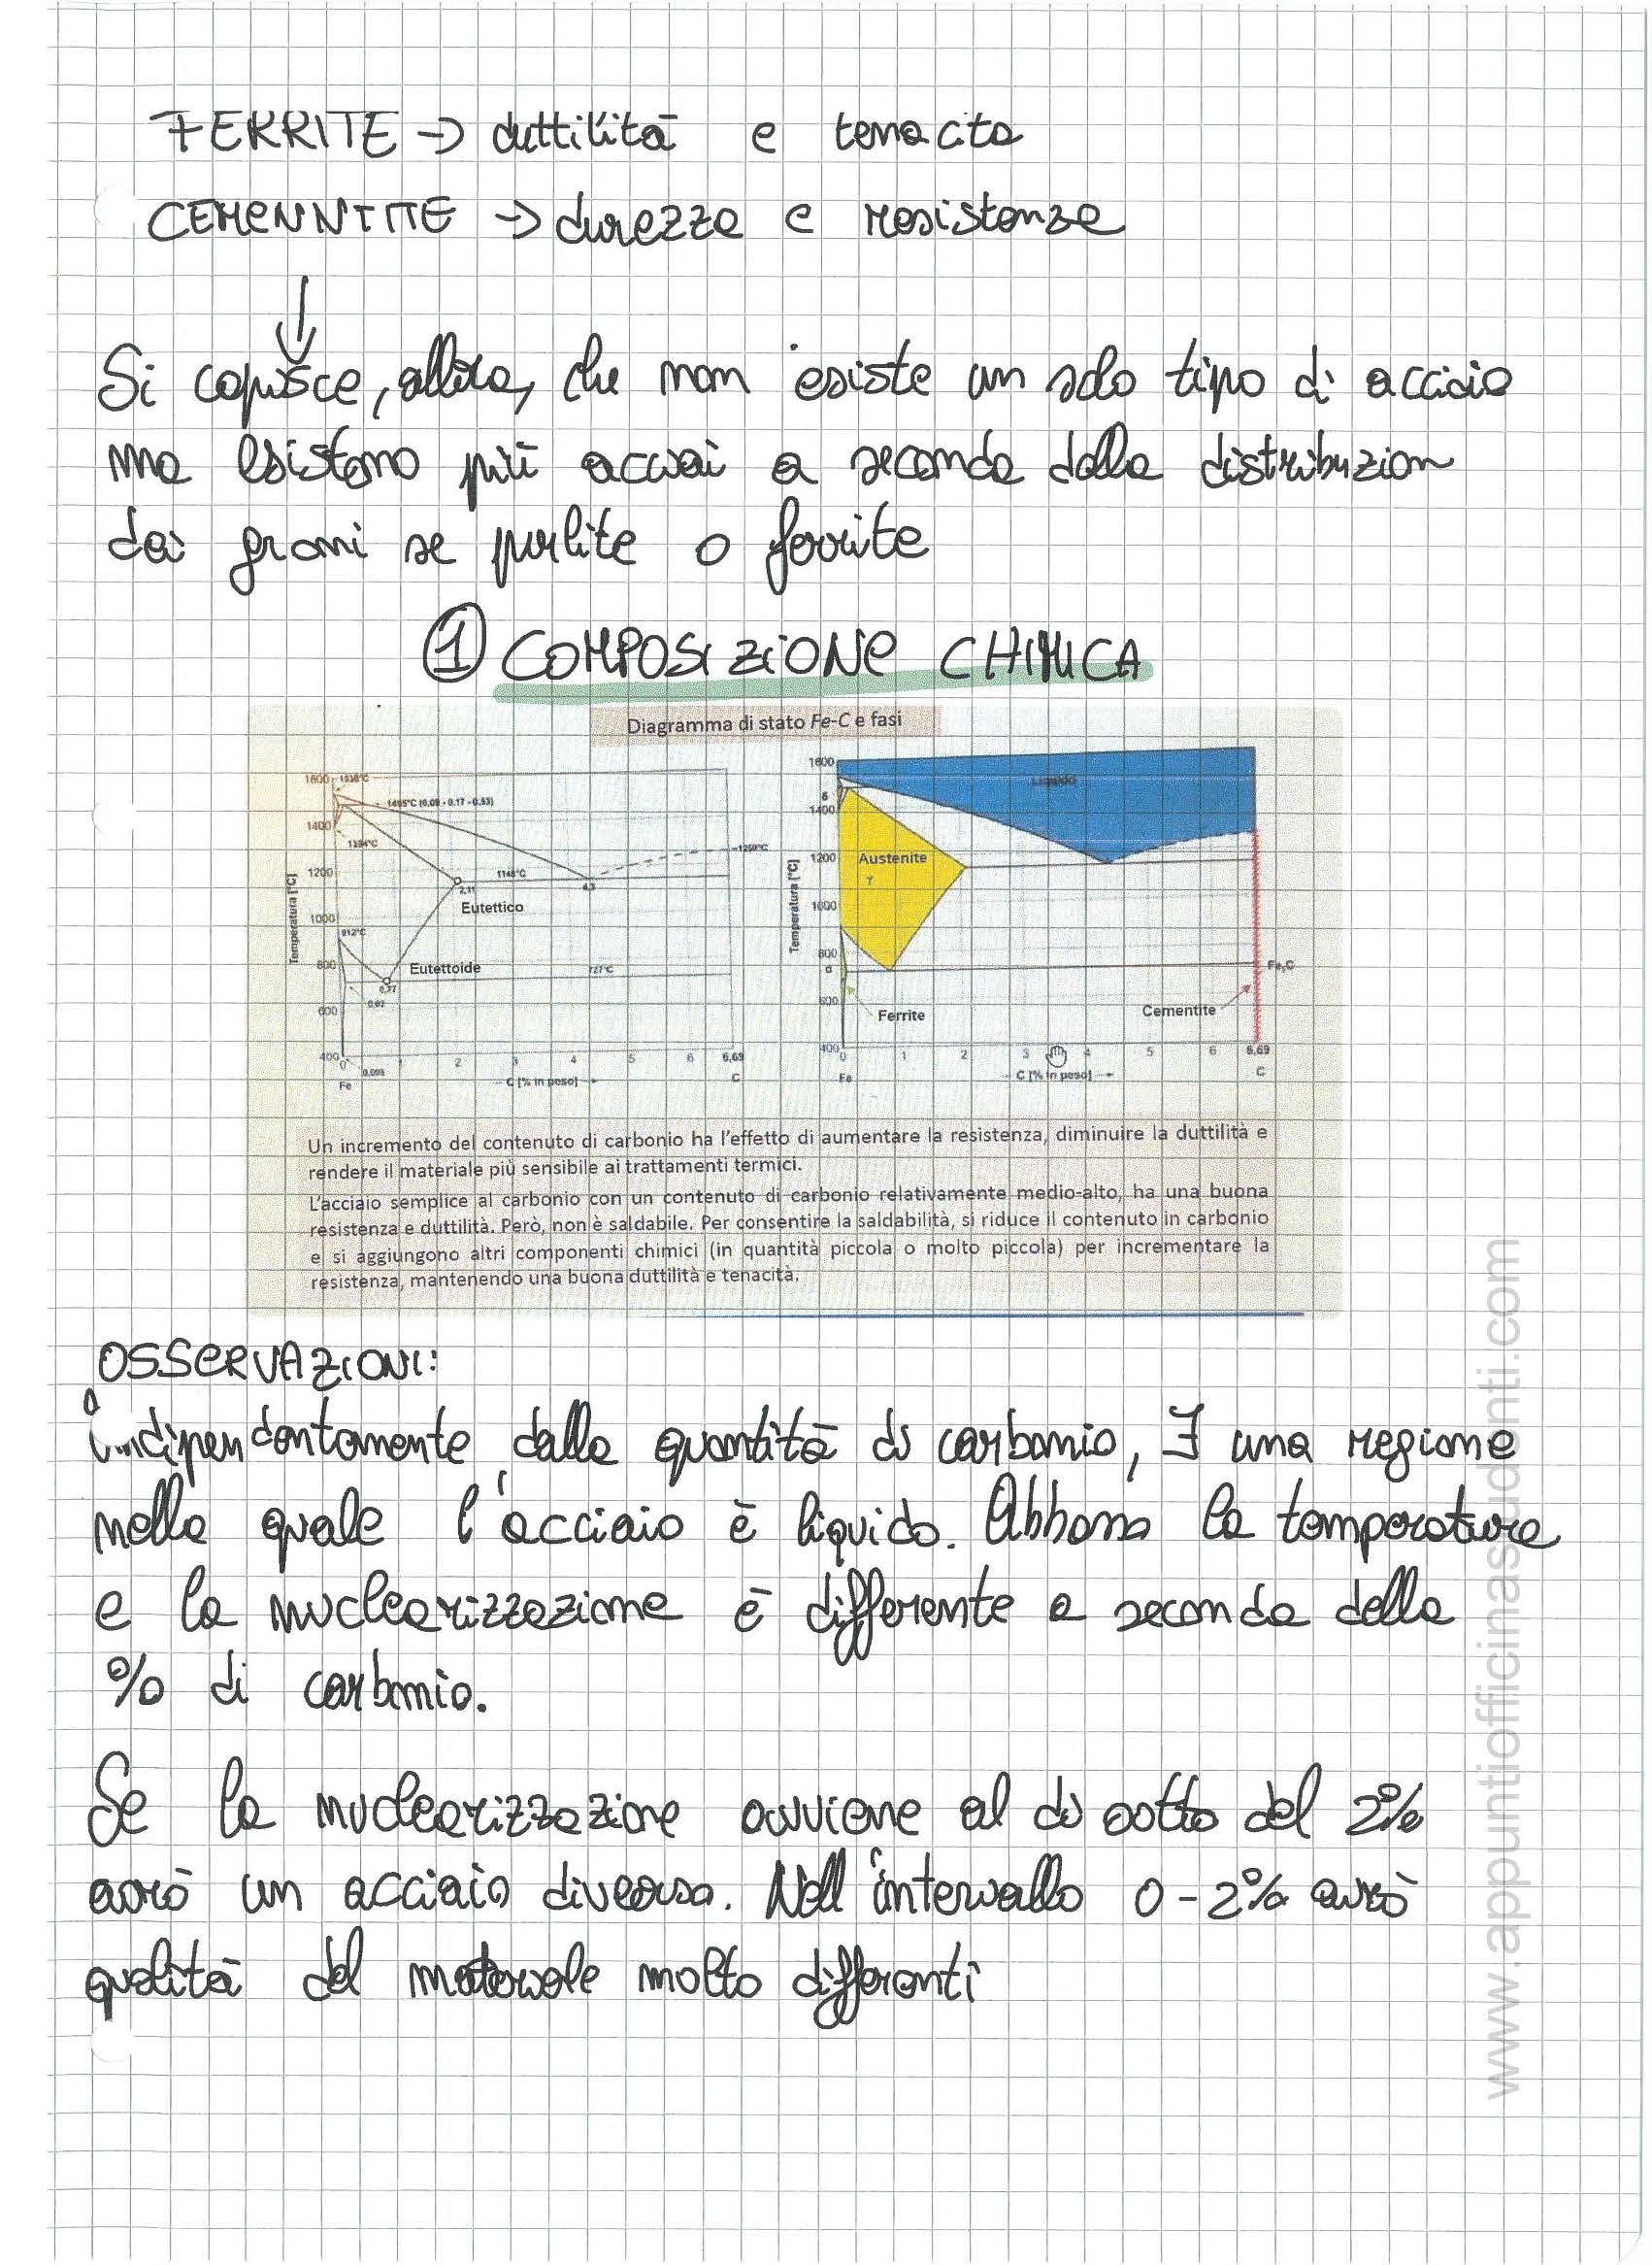 FERRITE → duttilità e tenacita
CEMENNTITE → durezza e resistenza
↓
Si capisce, allora, che non esiste un solo tipo di acciaio
ma esistono più acciai a seconda della distribuzion
dei grani se perlite o ferrite
① COMPOSIZIONE CHIMICA
Diagramma di stato Fe-C e fasi
1600 1538°C
1495°C (0,09 - 0,17 - 0,53)
1400
1394°C
1200
1148°C
1250°C
2,11
4,3
Eutettico
1000
912°C
800
Eutettoide
727°C
0,77
0,02
600
400
0 1 2 3 4 5 6 6,69
0,008
Fe
C [% in peso]
C
Temperatura [°C]
1600
Liquido
δ
1400
1200
Austenite
γ
1000
800
α
Fe₃C
600
Ferrite
Cementite
400
0 1 2 3 4 5 6 6,69
Fe
C [% in peso]
C
Temperatura [°C]
Un incremento del contenuto di carbonio ha l'effetto di aumentare la resistenza, diminuire la duttilità e
rendere il materiale più sensibile ai trattamenti termici.
L'acciaio semplice al carbonio con un contenuto di carbonio relativamente medio-alto, ha una buona
resistenza e duttilità. Però, non è saldabile. Per consentire la saldabilità, si riduce il contenuto in carbonio
e si aggiungono altri componenti chimici (in quantità piccola o molto piccola) per incrementare la
resistenza, mantenendo una buona duttilità e tenacità.
OSSERVAZIONI:
indipendentemente dalla quantità di carbonio, ∃ una regione
nella quale l'acciaio è liquido. Abbasso la temperatura
e la nuclearizzazione è differente a seconda della
% di carbonio.
Se la nuclearizzazione avviene al di sotto del 2%
avrò un acciaio diverso. Nell'intervallo 0-2% avrò
qualità del materiale molto differenti
www.appuntiofficinastudenti.com